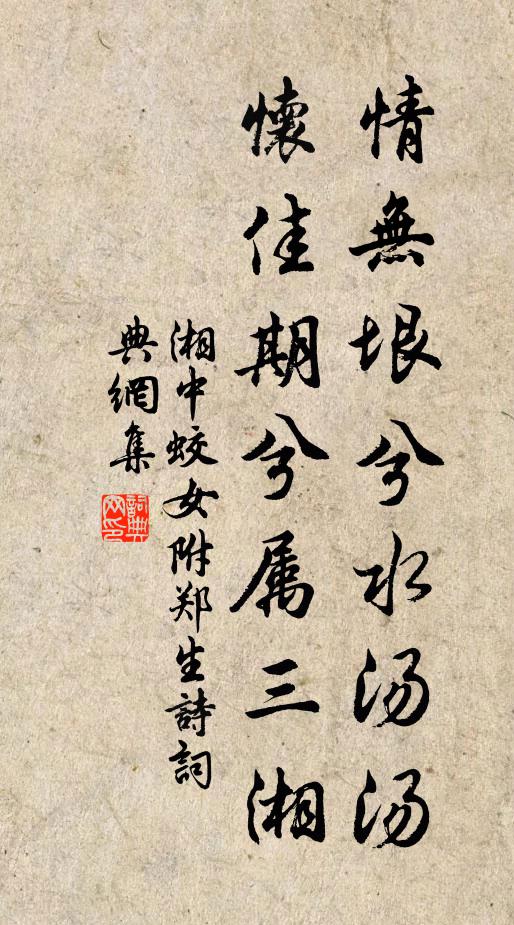 情無垠兮水汤汤
懷佳期兮属三湘
湘中蛟女附郑生詩詞
典網集
詞典网印